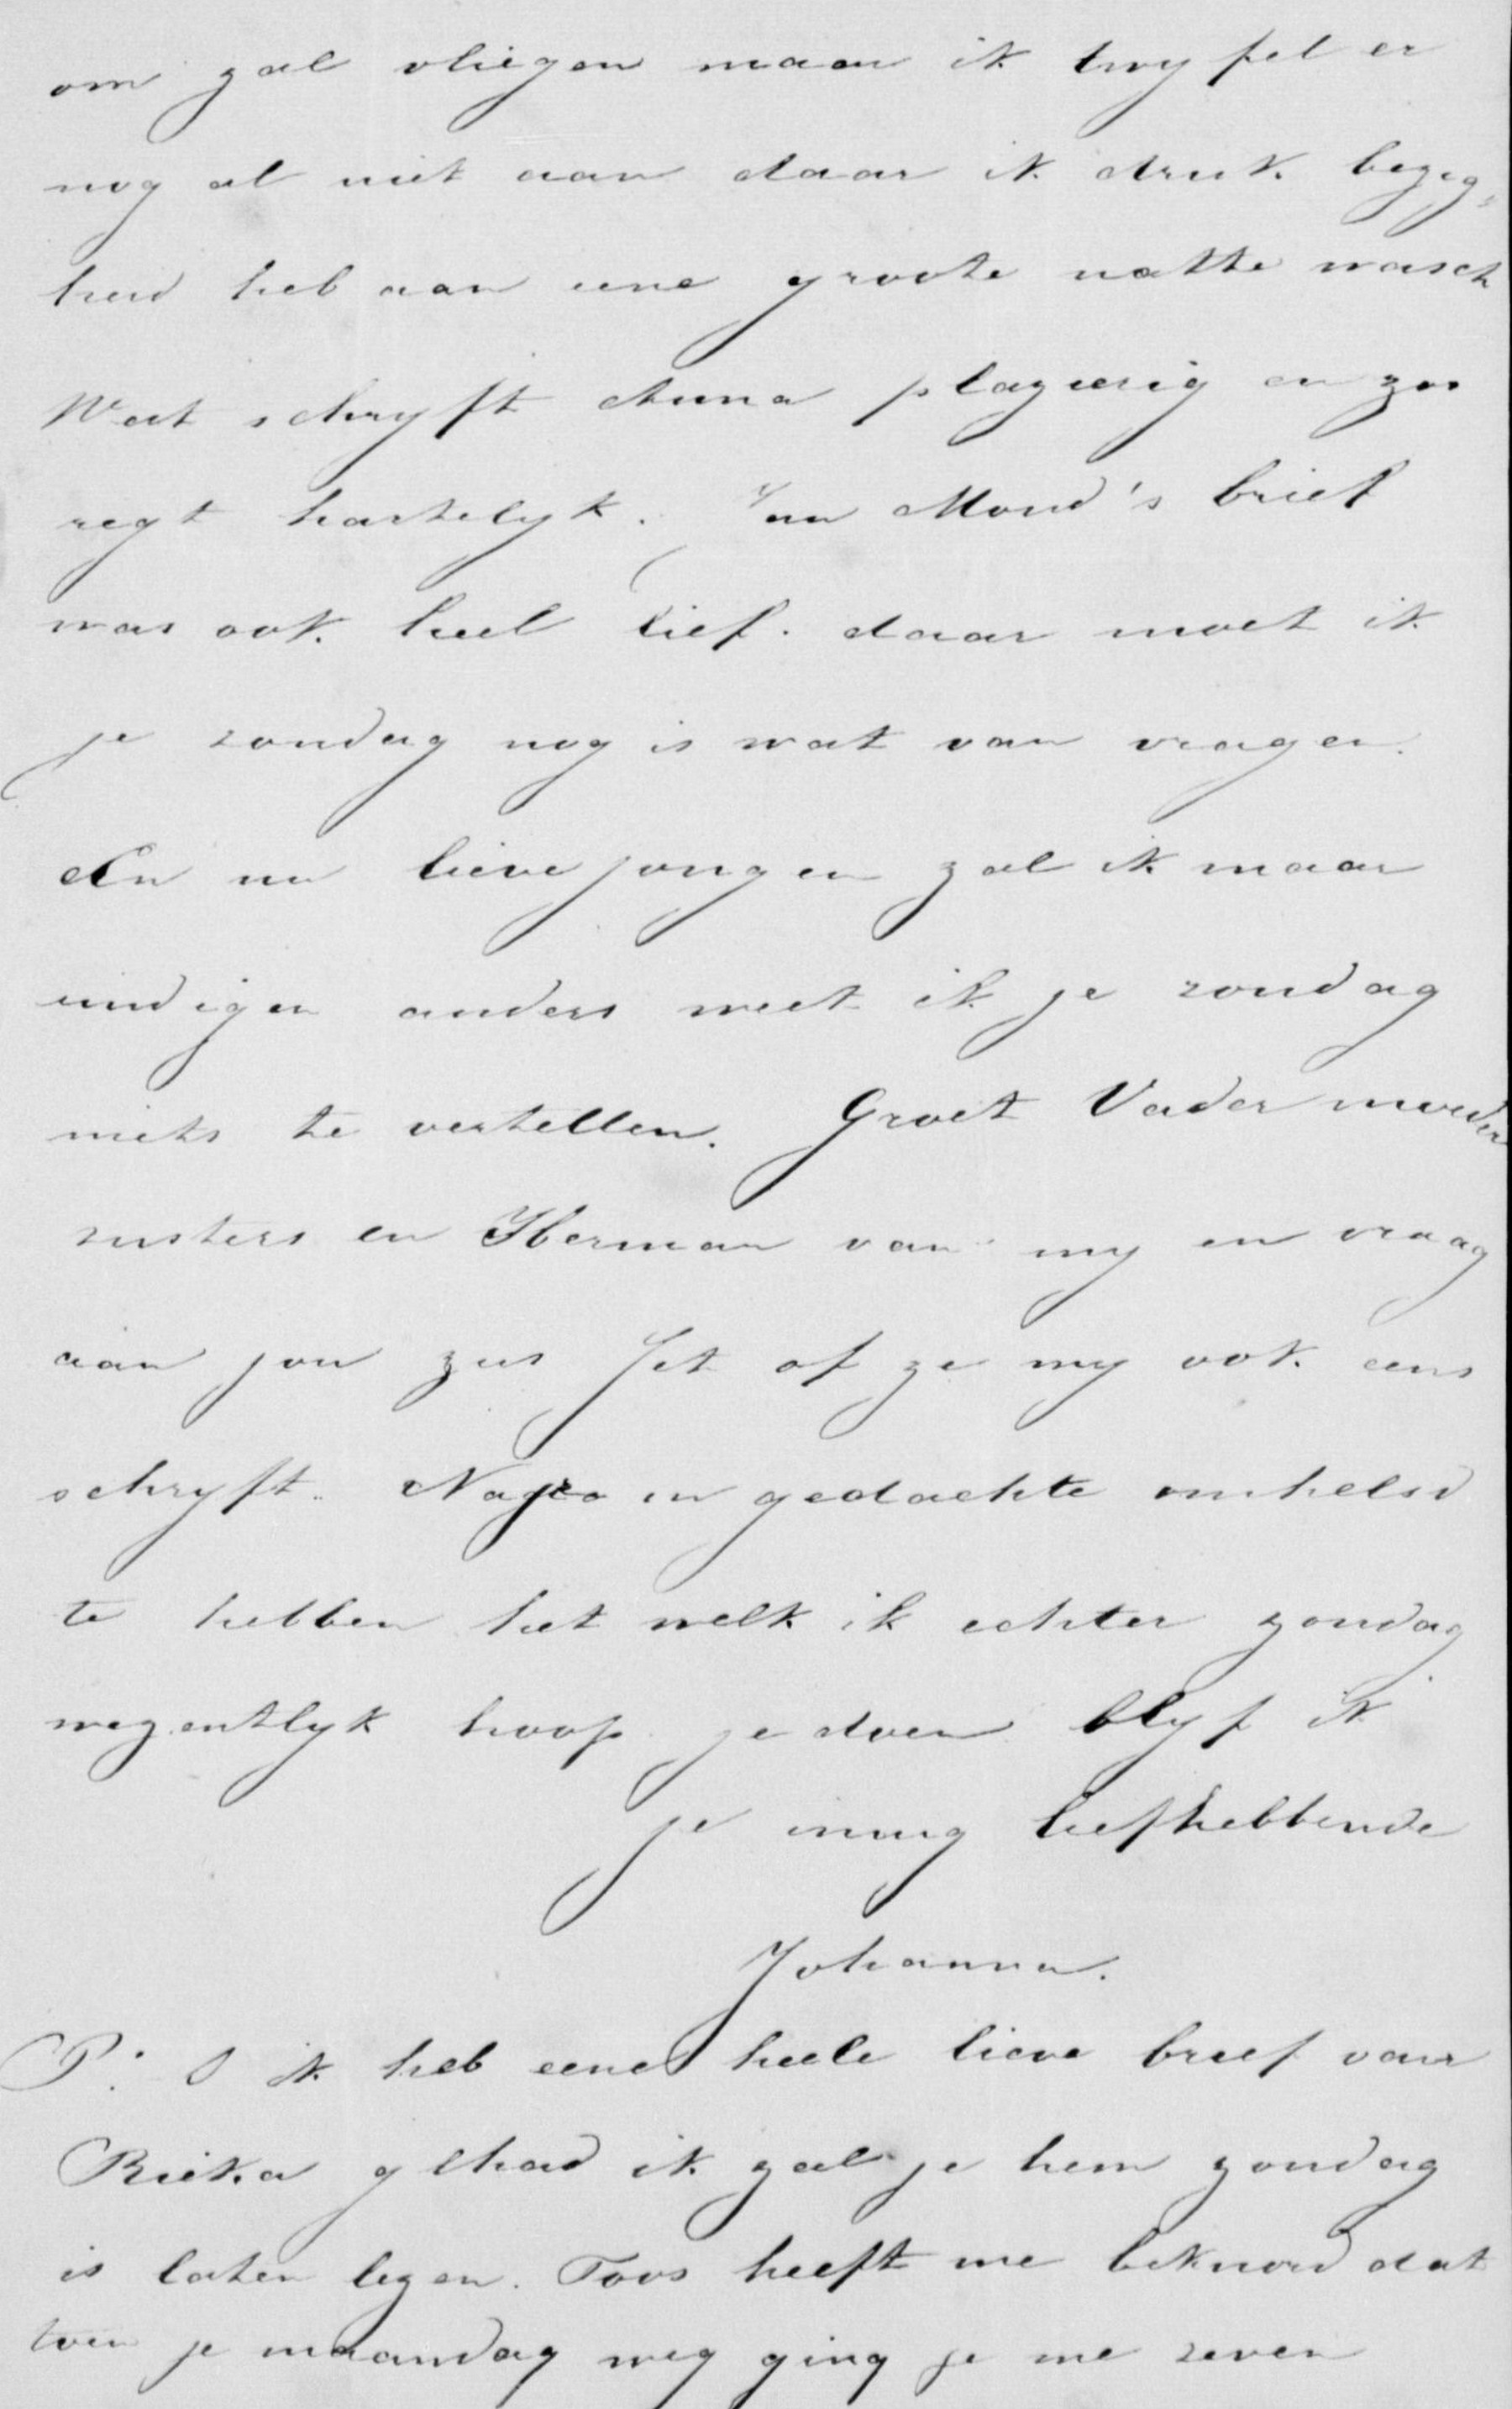 om zal vliegen maar ik twyfel er
nog al niet aan daar ik druk bezig-
heid heb aan eene groote natte wasch
Wat schryft Anna plagerig en zoo
regt hartelyk. Van Mond's brief
was ook heel lief. daar moet ik
je zondag nog is wat van vragen.
En nu lieve jongen zal ik maar
eindigen anders weet ik je zondag
niets te vertellen. Groet Vader moeder
zusters en Herman van my en vraag
aan jou zus Jet of ze my ook eens
schryft. Na je in gedachte omhelsd
te hebben het welk ik echter zondag
wezentlyk hoop te doen blyf ik
je innig liefhebbende
Johanna.
P. S ik heb eene heele lieve brief van
Rieka gehad ik zal je hem zondag
is laten lezen. Toos heeft me beknord dat
toen je maandag weg ging je me zeven